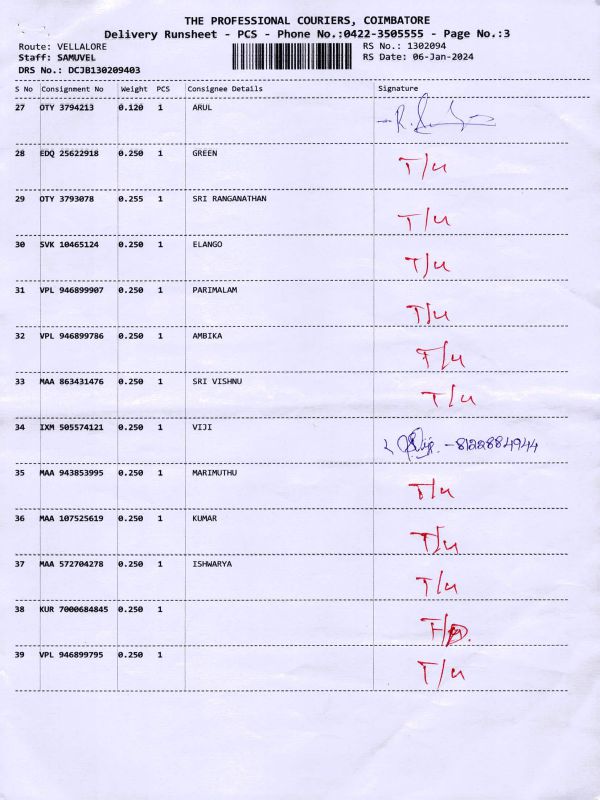 THE PROFESSIONAL COURIERS, COIMBATORE
Delivery Runsheet - PCS - Phone No.:0422-3505555 - Page No.:3
Route: VELLALORE RS No.: 1302094
Staff: SAMUVEL RS Date: 06-Jan-2024
DRS No.: DCJB130209403
S No Consignment No Weight PCS Consignee Details Signature
27 OTY 3794213 0.120 1 ARUL
28 EDQ 25622918 0.250 1 GREEN T/u
29 OTY 3793078 0.255 1 SRI RANGANATHAN T/u
30 SVK 10465124 0.250 1 ELANGO T/u
31 VPL 946899907 0.250 1 PARIMALAM T/u
32 VPL 946899786 0.250 1 AMBIKA T/u
33 MAA 863431476 0.250 1 SRI VISHNU T/u
34 IXM 505574121 0.250 1 VIJI -8122884944
35 MAA 943853995 0.250 1 MARIMUTHU T/u
36 MAA 107525619 0.250 1 KUMAR T/u
37 MAA 572704278 0.250 1 ISHWARYA T/u
38 KUR 7000684845 0.250 1
39 VPL 946899795 0.250 1 T/u